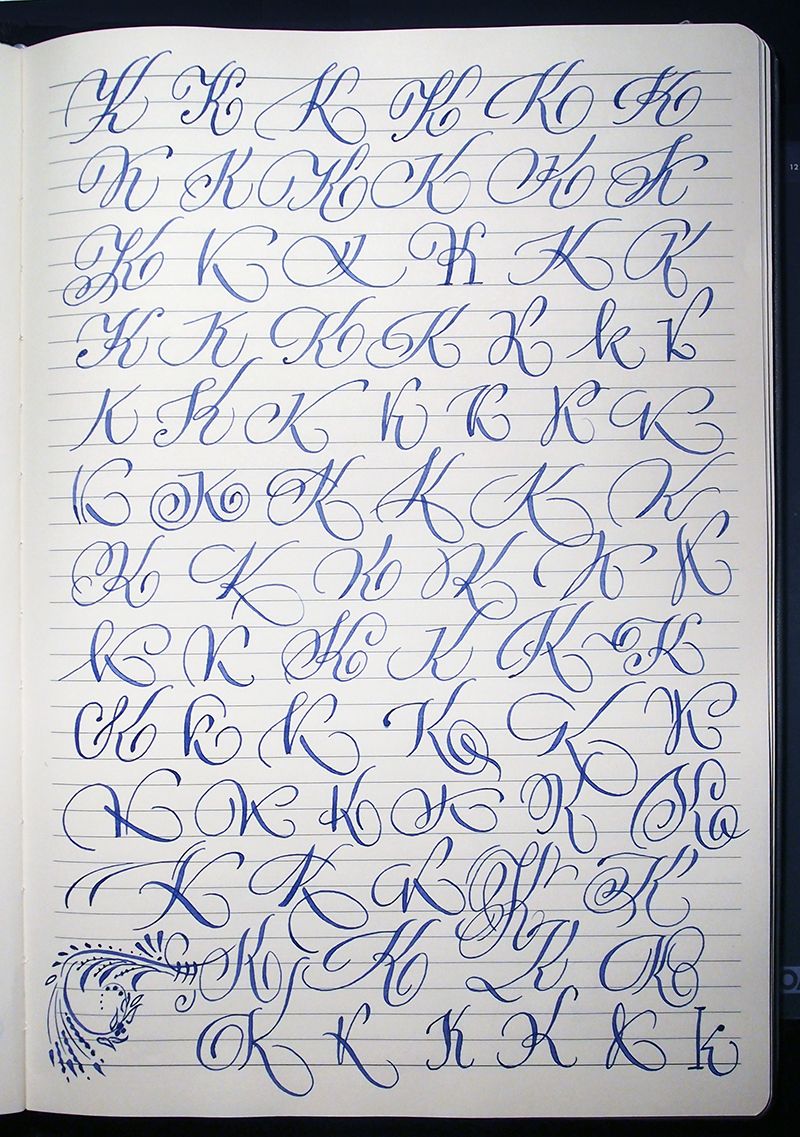 K K K K K K
K K K K K K
K K K K K K
K K K K K k K
K K K K K K K
K K K K K K
K K K K K K
k K K K K K
K k K K K K
K K K K K K
K K K K K
K K K K
K K K K K k
12